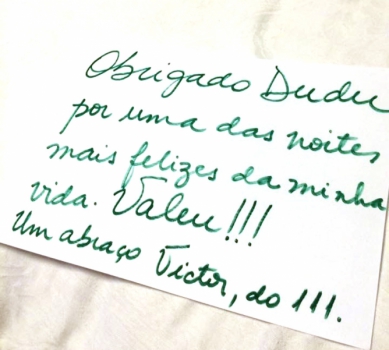 Obrigado Dudu
por uma das noites
mais felizes da minha
vida. Valeu!!!
Um abraço Victor, do 111.